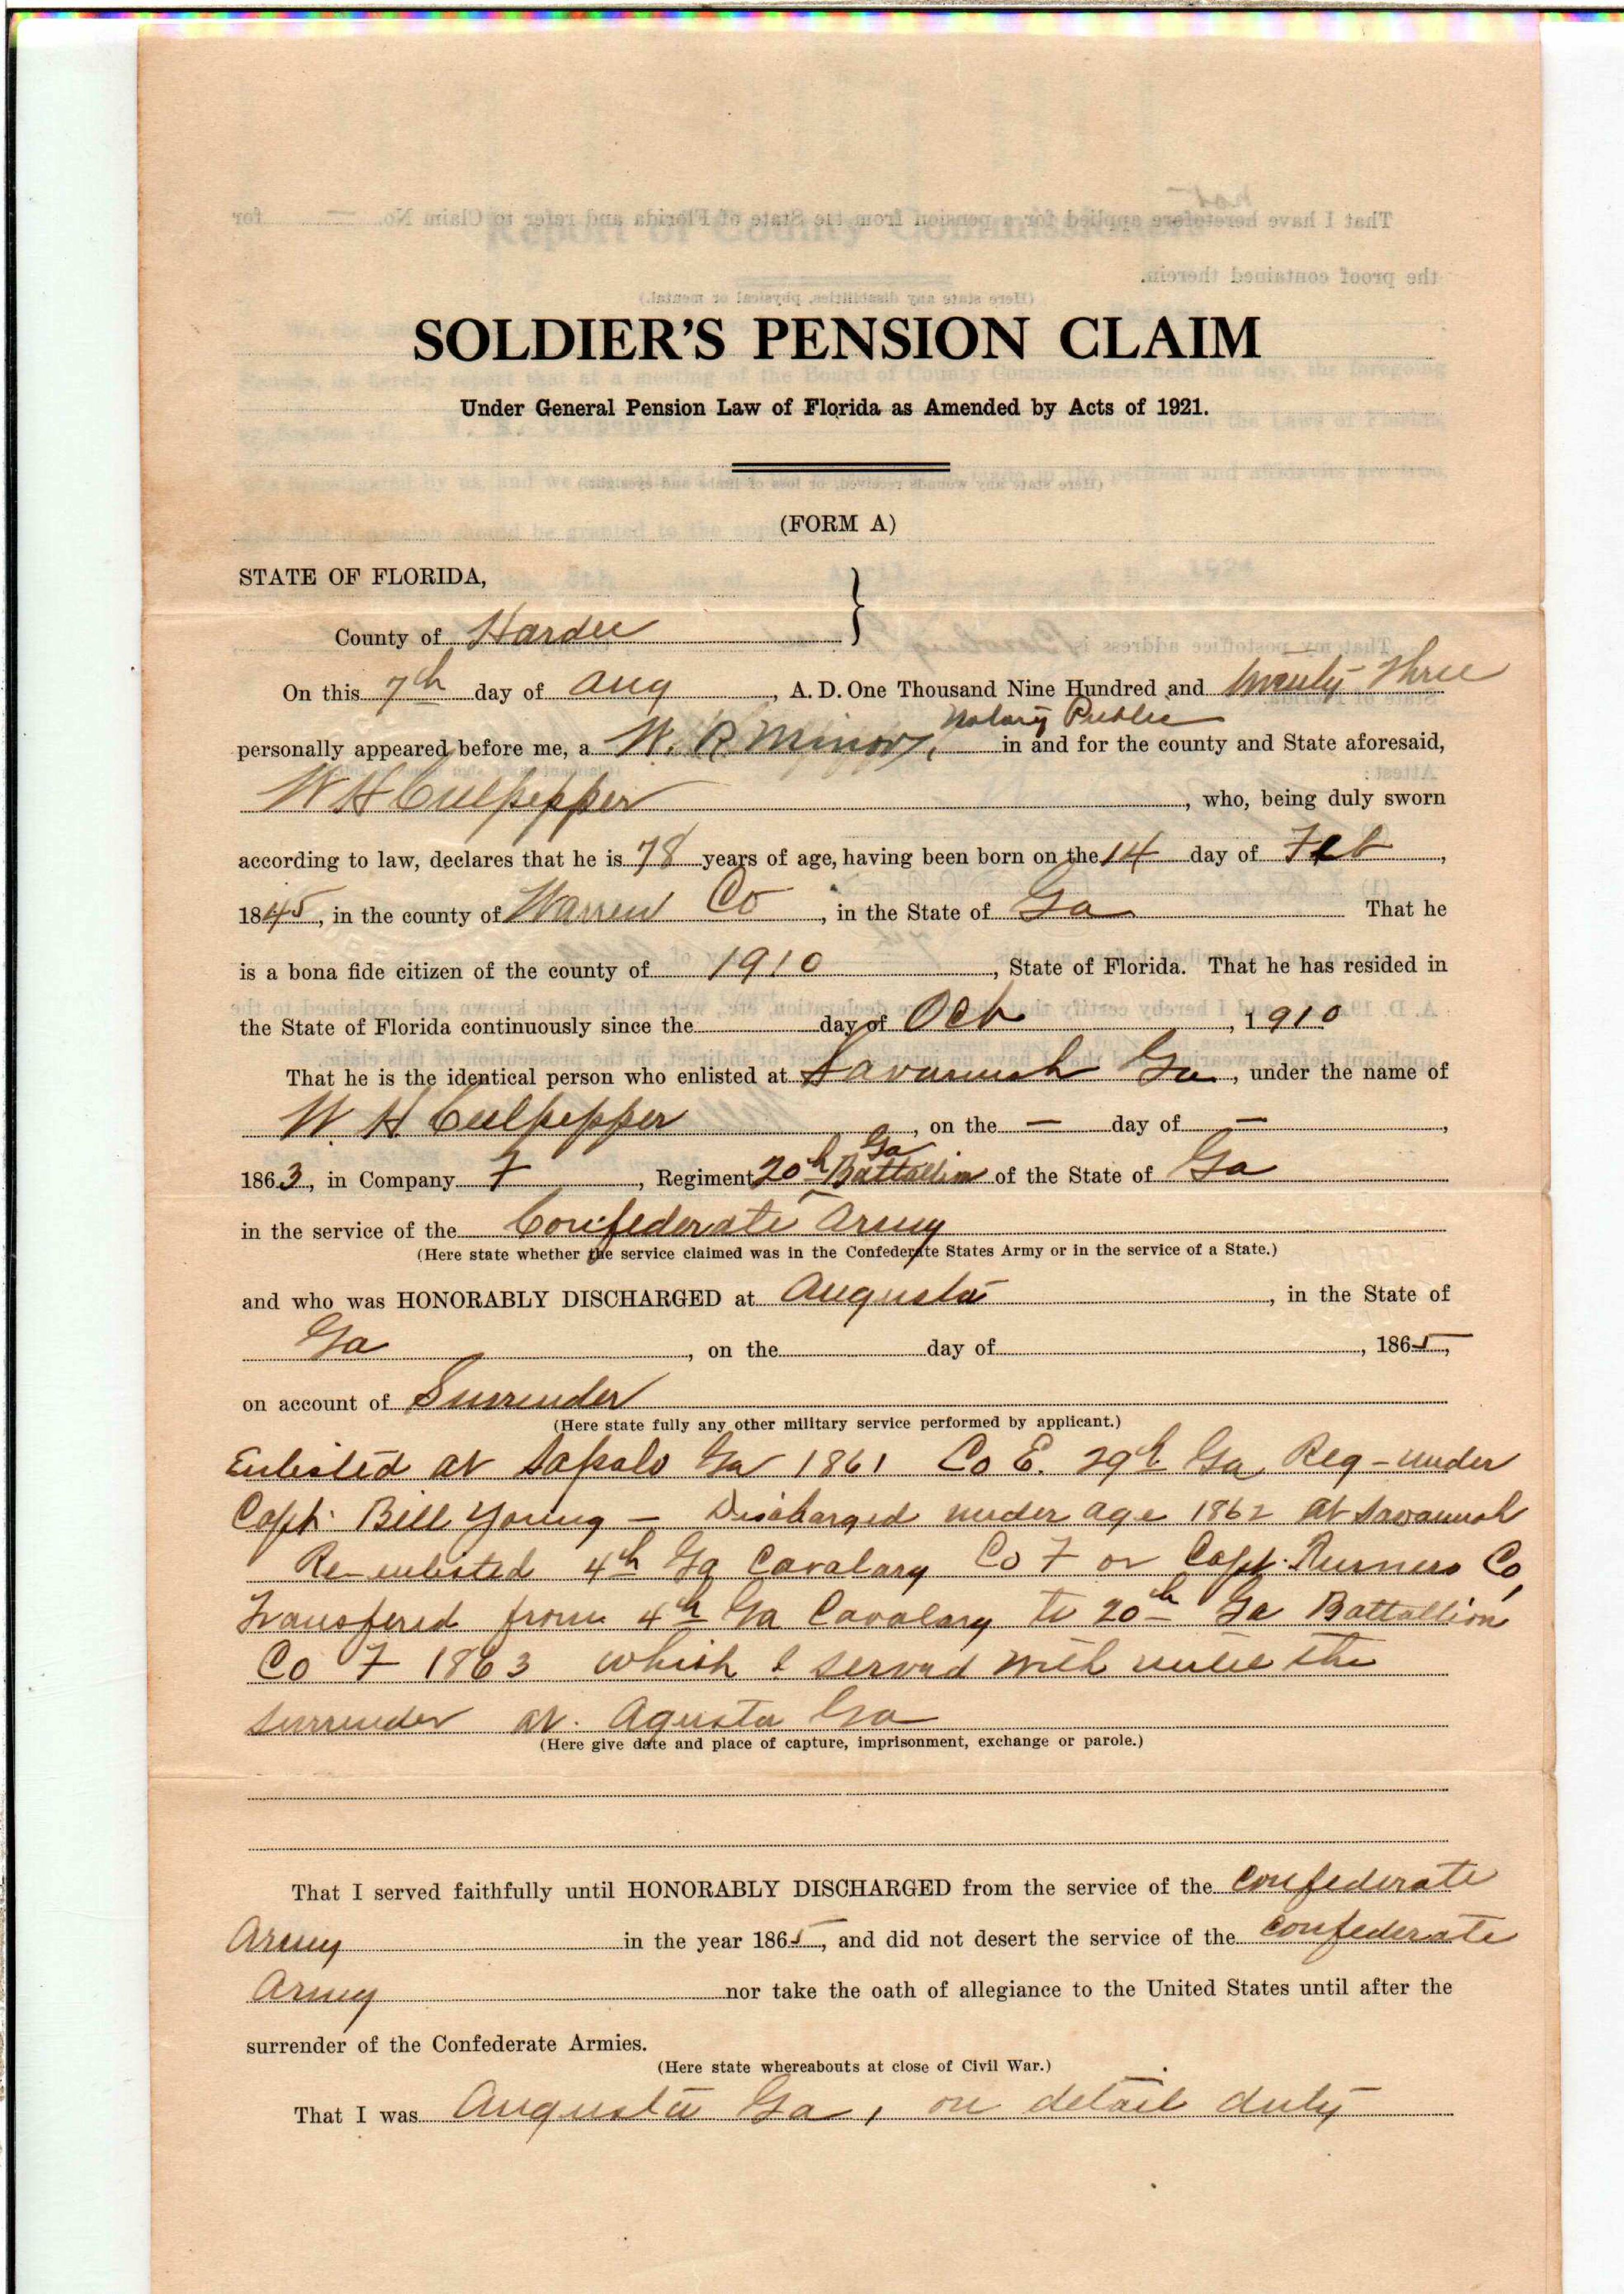 SOLDIER'S PENSION CLAIM
Under General Pension Law of Florida as Amended by Acts of 1921.
(FORM A)
STATE OF FLORIDA,
County of Hardee
On this 7th day of Aug, A. D. One Thousand Nine Hundred and twenty three
Notary Public
personally appeared before me, a W. R Minor, in and for the county and State aforesaid,
W H Culpepper, who, being duly sworn
according to law, declares that he is 78 years of age, having been born on the 14 day of Feb,
1845, in the county of Warren Co, in the State of Ga That he
is a bona fide citizen of the county of 1910, State of Florida. That he has resided in
the State of Florida continuously since the day of Oct, 1910
That he is the identical person who enlisted at Savannah Ga, under the name of
W. H Culpepper, on the — day of —,
1863, in Company F, Regiment 20th Ga Battallion of the State of Ga
in the service of the Confederate Army
(Here state whether the service claimed was in the Confederate States Army or in the service of a State.)
and who was HONORABLY DISCHARGED at Augusta, in the State of
Ga, on the day of, 1865,
on account of Surrender
(Here state fully any other military service performed by applicant.)
Enlisted at Sapalo Ga 1861 Co E. 29th Ga, Reg – under
Capt. Bill Young — Discharged under age 1862 at Savannah
Re-enlisted 4th Ga Cavalary Co F or Capt. Co,
Transfered from 4th Ga Cavalary to 20th Ga Battallion
Co F 1863 which I served with untill the
surrender at. Agusta Ga
(Here give date and place of capture, imprisonment, exchange or parole.)
That I served faithfully until HONORABLY DISCHARGED from the service of the Confederate
Army in the year 1865, and did not desert the service of the Confederate
Army nor take the oath of allegiance to the United States until after the
surrender of the Confederate Armies.
(Here state whereabouts at close of Civil War.)
That I was Augusta Ga, on detail duty